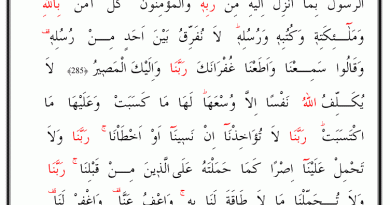 الرَّسُوْلُ بِمَآ اُنْزِلَ اِلَيْهِ مِنْ رَّبِّهٖ وَالْمُؤْمِنُوْنَ ؕ كُلٌّ اٰمَنَ بِاللّٰهِ
وَمَلٰٓئِكَتِهٖ وَكُتُبِهٖ وَرُسُلِهٖ ؕ لَا نُفَرِّقُ بَيْنَ اَحَدٍ مِّنْ رُّسُلِهٖ ؕ
وَقَالُوْا سَمِعْنَا وَاَطَعْنَا غُفْرَانَكَ رَبَّنَا وَاِلَيْكَ الْمَصِيْرُ ﴿285﴾ لَا
يُكَلِّفُ اللّٰهُ نَفْسًا اِلَّا وُسْعَهَا ؕ لَهَا مَا كَسَبَتْ وَعَلَيْهَا مَا
اكْتَسَبَتْ ؕ رَبَّنَا لَا تُؤَاخِذْنَآ اِنْ نَّسِيْنَآ اَوْ اَخْطَاْنَا ۚ رَبَّنَا وَلَا
تَحْمِلْ عَلَيْنَآ اِصْرًا كَمَا حَمَلْتَهٗ عَلَى الَّذِيْنَ مِنْ قَبْلِنَا ۚ رَبَّنَا
وَلَا تُحَمِّلْنَا مَا لَا طَاقَةَ لَنَا بِهٖ ۚ وَاعْفُ عَنَّا ۥ وَاغْفِرْ لَنَا ۥ